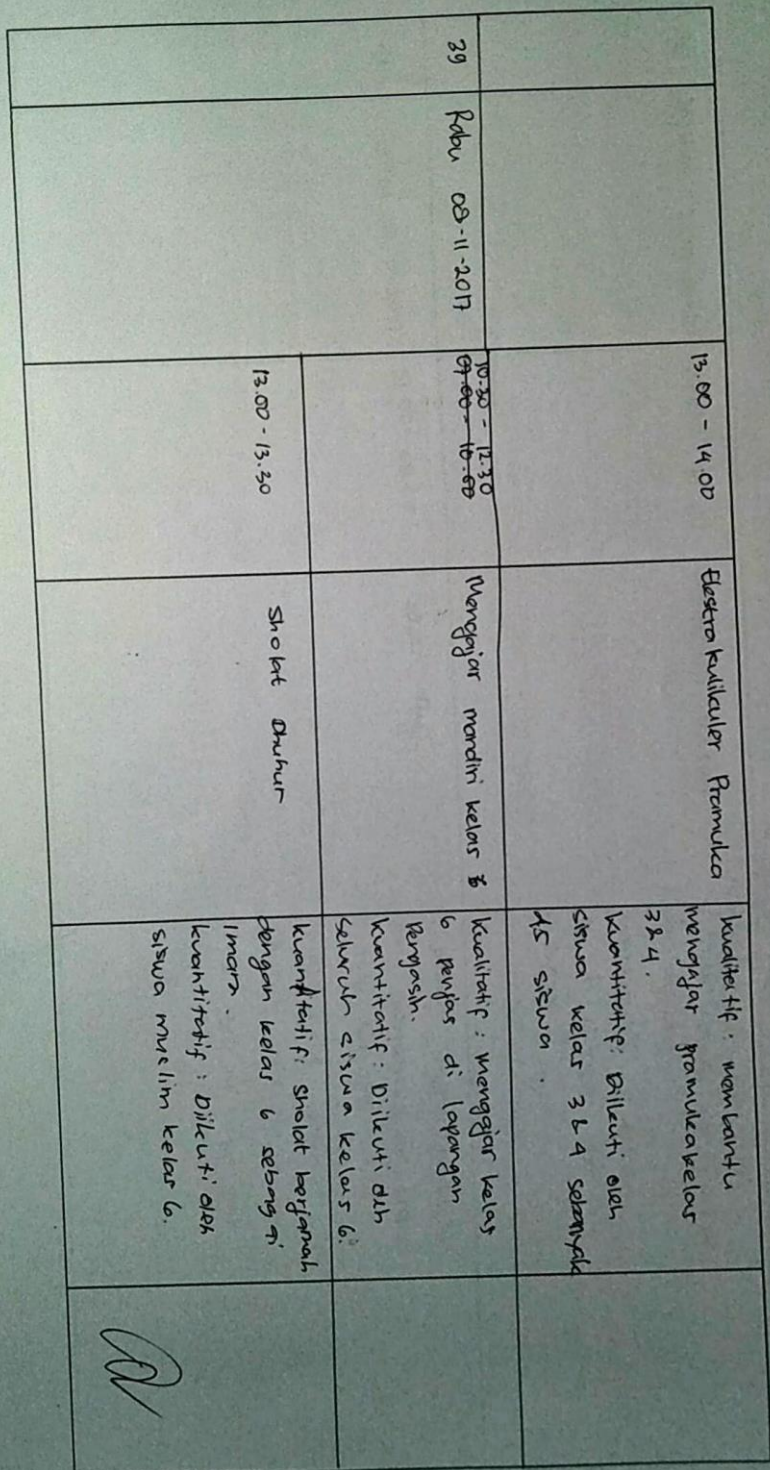 13.00 - 14.00
Elestrakulikuler Pramuka
kualitatif : membantu
mengajar pramuka kelas
3 & 4.
kuantitatif : Diikuti oleh
siswa kelas 3 & 4 sebanyak
45 siswa.
39
Rabu 08-11-2017
10.30 - 12.30
07.00 - 10.00
Mengajar mandiri kelas 6
kualitatif : mengajar kelas
6 penjas di lapangan
Pengasih.
kuantitatif : Diikuti oleh
seluruh siswa kelas 6.
13.00 - 13.30
Sholat Dhuhur
kuantitatif : Sholat berjamah
dengan kelas 6 sebagai
imam.
kuantitatif : Diikuti oleh
siswa muslim kelas 6.